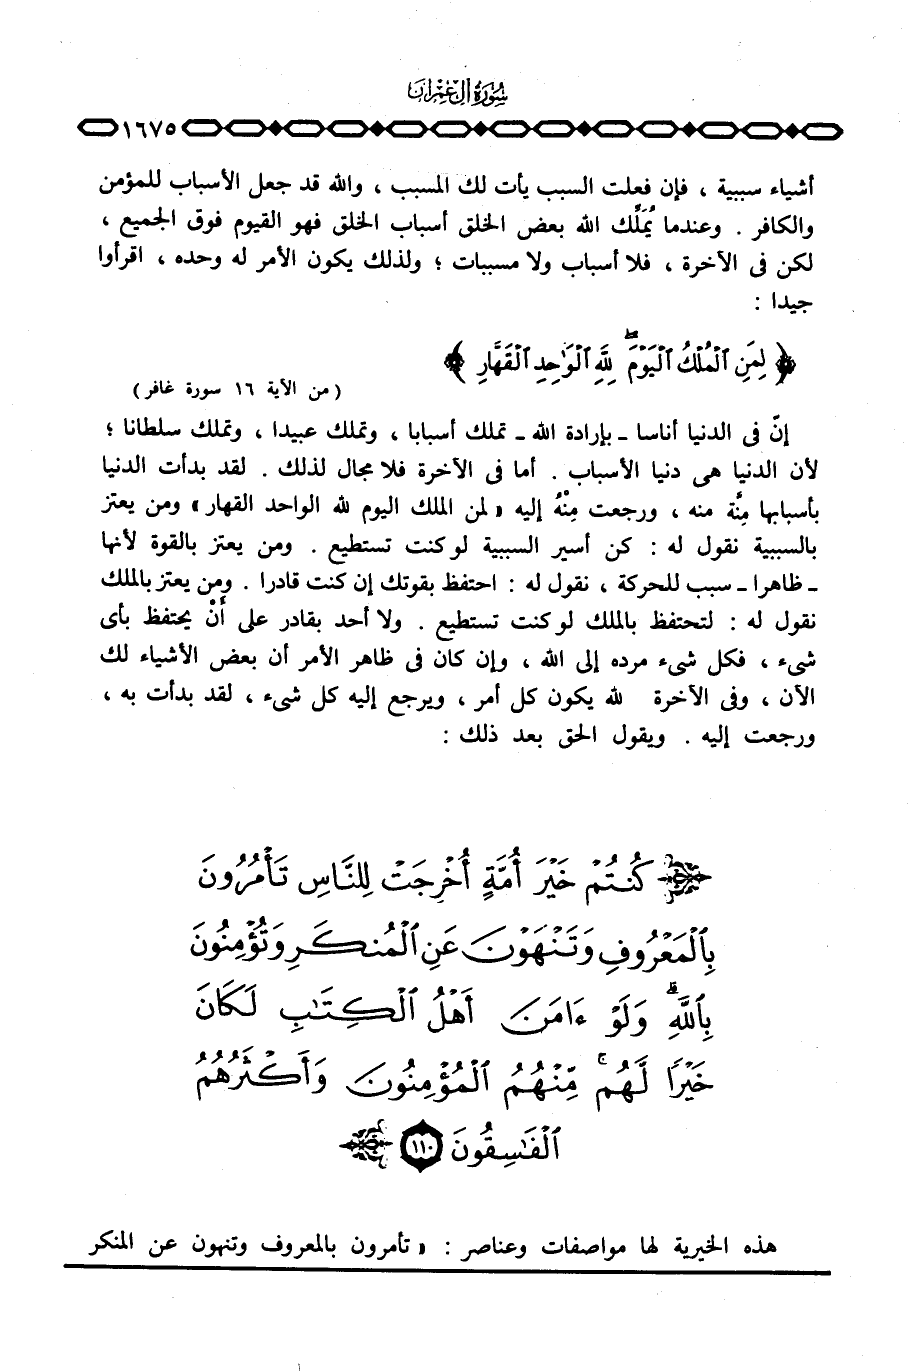 سُورَةُ آلِ عِمْرَانَ
١٦٧٥
أشياء سببية ، فإن فعلت السبب يأت لك المسبب ، والله قد جعل الأسباب للمؤمن
والكافر . وعندما يُمَلِّك الله بعض الخلق أسباب الخلق فهو القيوم فوق الجميع ،
لكن فى الآخرة ، فلا أسباب ولا مسببات ؛ ولذلك يكون الأمر له وحده ، اقرأوا
جيدا :
﴿ لِّمَنِ ٱلْمُلْكُ ٱلْيَوْمَ ۖ لِلَّهِ ٱلْوَٰحِدِ ٱلْقَهَّارِ ﴾
( من الآية ١٦ سورة غافر )
إنّ فى الدنيا أناسا ـ بإرادة الله ـ تملك أسبابا ، وتملك عبيدا ، وتملك سلطانا ؛
لأن الدنيا هى دنيا الأسباب . أما فى الآخرة فلا مجال لذلك . لقد بدأت الدنيا
بأسبابها مِنَّة منه ، ورجعت مِنْهُ إليه « لمن الملك اليوم لله الواحد القهار » ومن يعتز
بالسببية نقول له : كن أسير السببية لو كنت تستطيع . ومن يعتز بالقوة لأنها
ـ ظاهرا ـ سبب للحركة ، نقول له : احتفظ بقوتك إن كنت قادرا . ومن يعتز بالملك
نقول له : لتحتفظ بالملك لو كنت تستطيع . ولا أحد بقادر على أَنْ يحتفظ بأى
شىء ، فكل شىء مرده إلى الله ، وإن كان فى ظاهر الأمر أن بعض الأشياء لك
الآن ، وفى الآخرة لله يكون كل أمر ، ويرجع إليه كل شىء ، لقد بدأت به ،
ورجعت إليه . ويقول الحق بعد ذلك :
كُنتُمْ خَيْرَ أُمَّةٍ أُخْرِجَتْ لِلنَّاسِ تَأْمُرُونَ
بِٱلْمَعْرُوفِ وَتَنْهَوْنَ عَنِ ٱلْمُنكَرِ وَتُؤْمِنُونَ
بِٱللَّهِ ۗ وَلَوْ ءَامَنَ أَهْلُ ٱلْكِتَٰبِ لَكَانَ
خَيْرًا لَّهُم ۚ مِّنْهُمُ ٱلْمُؤْمِنُونَ وَأَكْثَرُهُمُ
ٱلْفَٰسِقُونَ ١١٠
هذه الخيرية لها مواصفات وعناصر : « تأمرون بالمعروف وتنهون عن المنكر